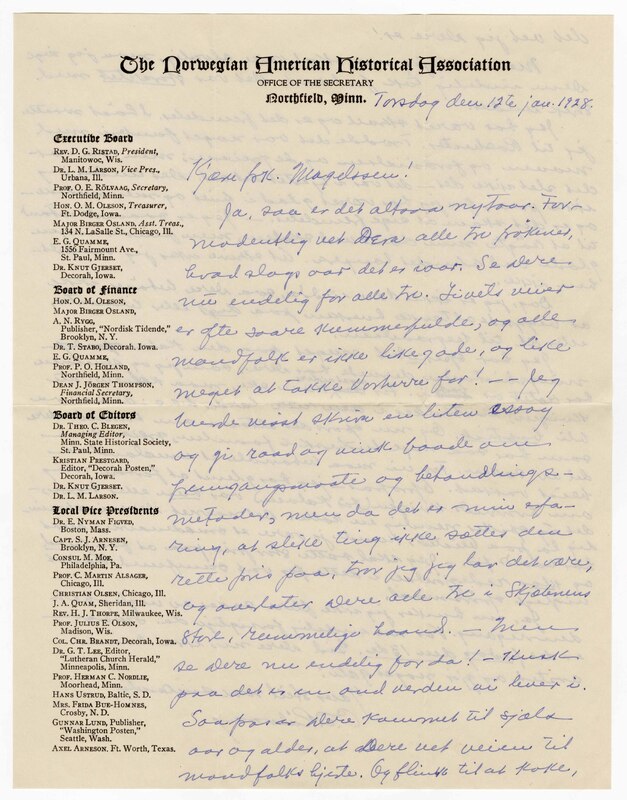 The Norwegian American Historical Association
OFFICE OF THE SECRETARY
Northfield, Minn.
Torsdag den 12te jan. 1928.
Executive Board
REV. D. G. RISTAD, President,
Manitowoc, Wis.
DR. L. M. LARSON, Vice Pres.,
Urbana, Ill.
PROF. O. E. RÖLVAAG, Secretary,
Northfield, Minn.
HON. O. M. OLESON, Treasurer,
Ft. Dodge, Iowa.
MAJOR BIRGER OSLAND, Asst. Treas.,
134 N. LaSalle St., Chicago, Ill.
E. G. QUAMME,
1556 Fairmount Ave.,
St. Paul, Minn.
DR. KNUT GJERSET,
Decorah, Iowa.
Board of Finance
HON. O. M. OLESON,
MAJOR BIRGER OSLAND,
A. N. RYGG,
Publisher, "Nordisk Tidende,"
Brooklyn, N. Y.
DR. T. STABO, Decorah, Iowa.
E. G. QUAMME,
PROF. P. O. HOLLAND,
Northfield, Minn.
DEAN J. JÖRGEN THOMPSON,
Financial Secretary,
Northfield, Minn.
Board of Editors
DR. THEO. C. BLEGEN,
Managing Editor,
Minn. State Historical Society,
St. Paul, Minn.
KRISTIAN PRESTGARD,
Editor, "Decorah Posten,"
Decorah, Iowa.
DR. KNUT GJERSET.
DR. L. M. LARSON.
Local Vice Presidents
DR. E. NYMAN FIGVED,
Boston, Mass.
CAPT. S. J. ARNESEN,
Brooklyn, N. Y.
CONSUL M. MOE,
Philadelphia, Pa.
PROF. C. MARTIN ALSAGER,
Chicago, Ill.
CHRISTIAN OLSEN, Chicago, Ill.
J. A. QUAM, Sheridan, Ill.
REV. H. J. THORPE, Milwaukee, Wis.
PROF. JULIUS E. OLSON,
Madison, Wis.
COL. CHR. BRANDT, Decorah, Iowa.
DR. G. T. LEE, Editor,
"Lutheran Church Herald,"
Minneapolis, Minn.
PROF. HERMAN C. NORDLIE,
Moorhead, Minn.
HANS USTRUD, Baltic, S. D.
MRS. FRIDA BUE-HOMNES,
Crosby, N. D.
GUNNAR LUND, Publisher,
"Washington Posten,"
Seattle, Wash.
AXEL ARNESON. Ft. Worth, Texas.
Kjære frk. Magelssen!
Ja, saa er det altsaa nytaar. For-
modentlig vet Dere alle tre frøkener,
hvad slags aar det er iaar. Se Dere
nu endelig for alle tre. Livets veier
er ofte saare kummefulde, og alle
mandfolk er ikke like gode, og like
meget at takke Vorherre for! -- Jeg
burde visst skrive en liten essay
og gi raad og vink baade om
fremgangsmaate og behandlings-
metoder, men da det er min erfa-
ring, at slike ting ikke sættes den
rette pris paa, tror jeg jeg lar det være,
og overlater Dere alle tre i Skjæbnens
store, rummelige haand. — Men
se Dere nu endelig for da! – Husk
paa det er en ond verden vi lever i.
Saapas er Dere kommet til sjæls
aar og alder, at Dere vet veien til
mandfolks hjerte. Og flink til at koke,